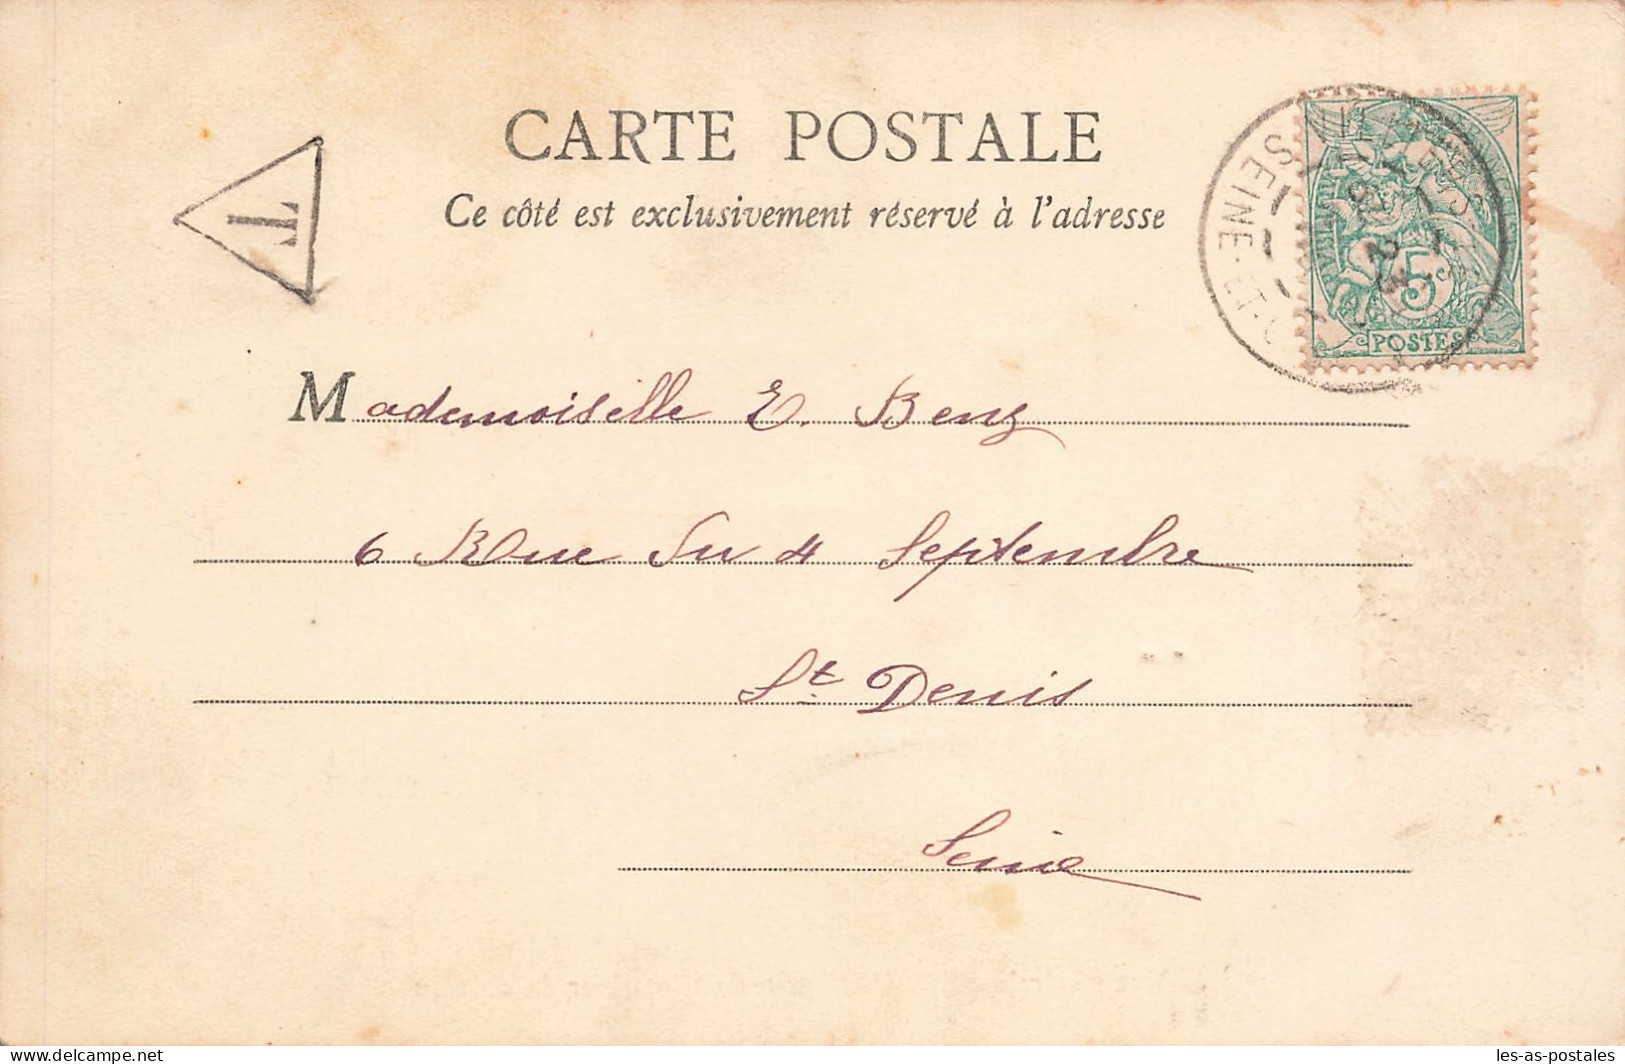 CARTE POSTALE
Ce côté est exclusivement réservé à l'adresse
T
SEINE-ET-O
5
POSTES
Mademoiselle E. Benz
6 Rue Du 4 Septembre
St Denis
Seine
www.delcampe.net
les-as-postales